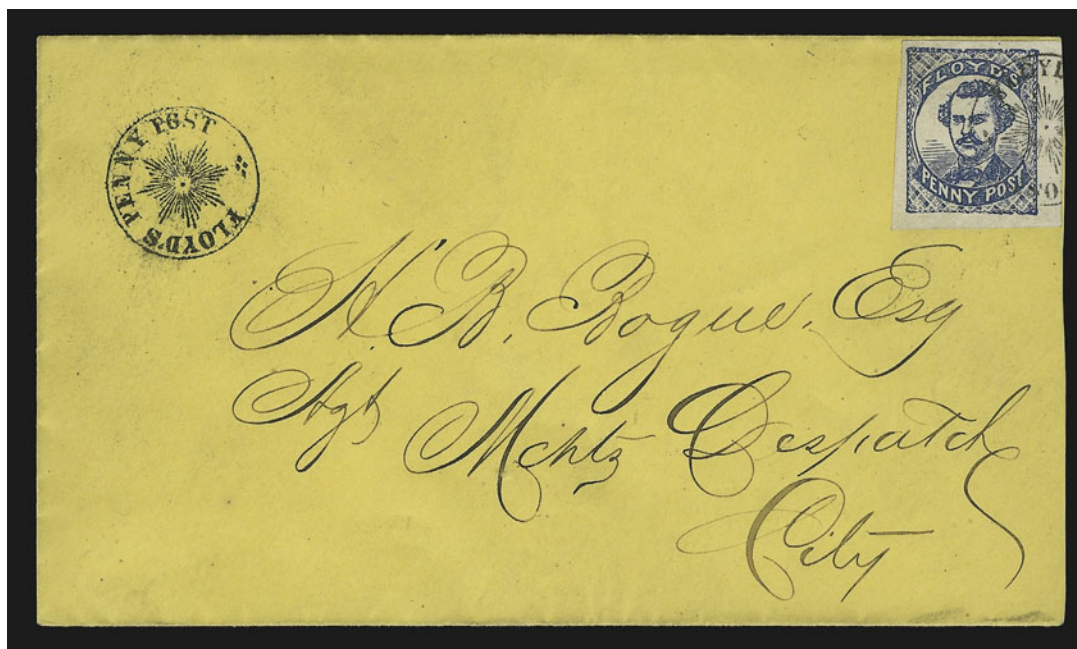 FLOYD'S PENNY POST
FLOYD'S
PENNY POST
H. B. Bogue, Esq
Agt
Mchts Despatch
City